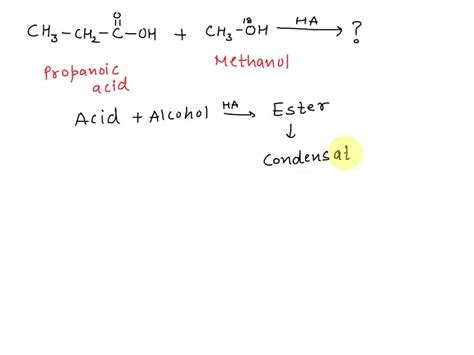 O
CH₃-CH₂-C-OH + CH₃-¹⁸OH HA ?
Propanoic acid
Methanol
Acid + Alcohol HA → Ester
↓
Condensat